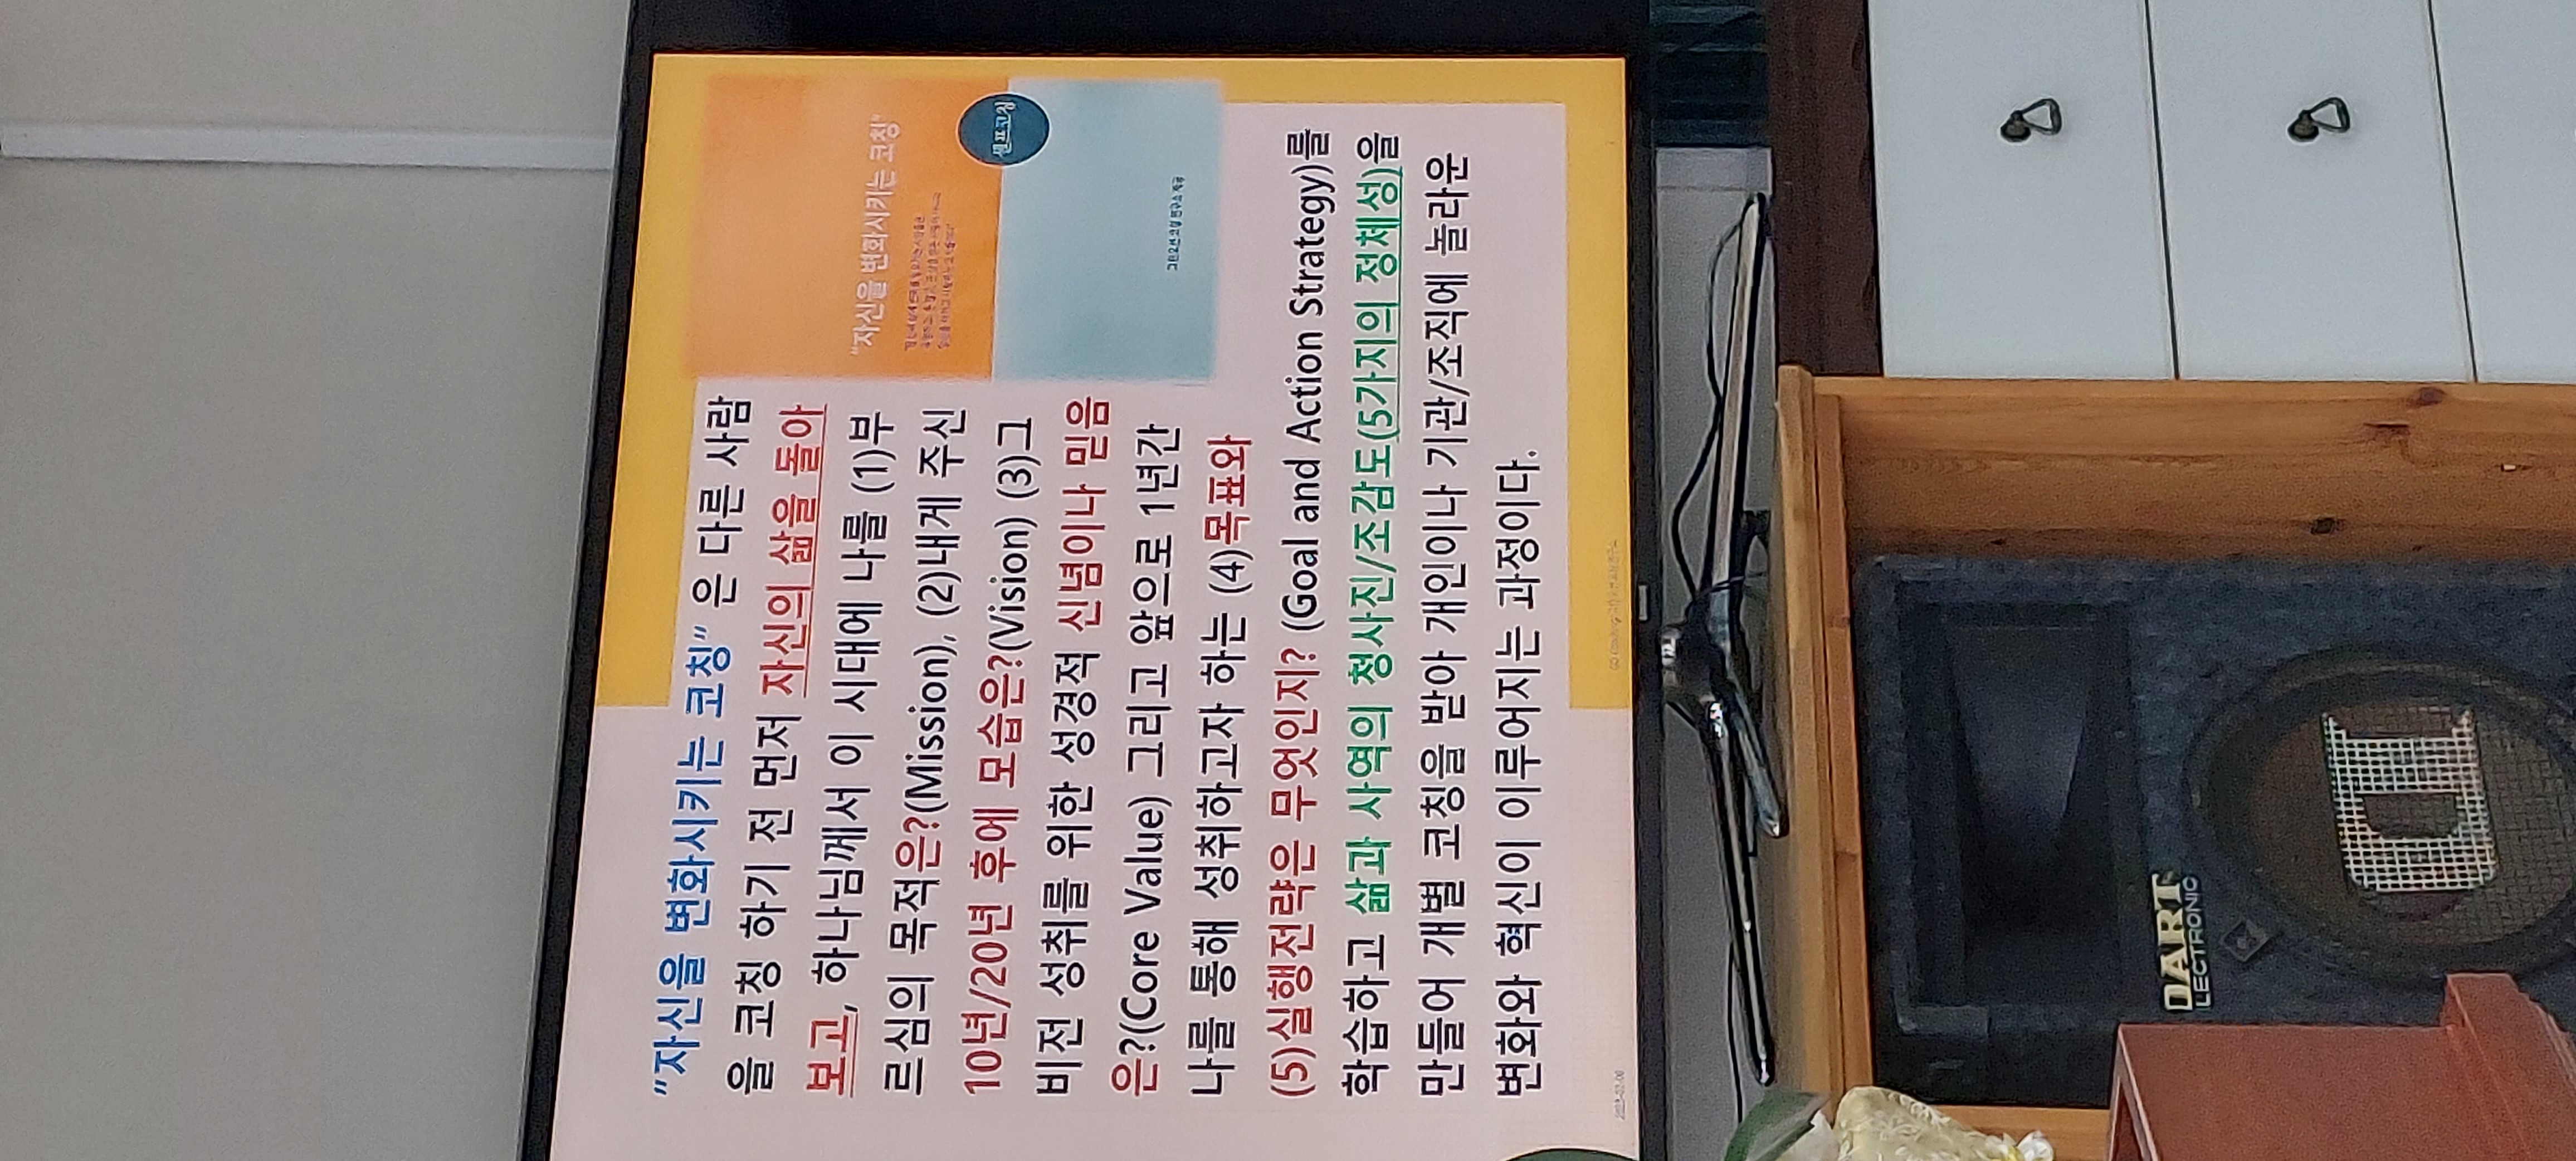 "자신을 변화시키는 코칭" 은 다른 사람
을 코칭 하기 전 먼저 자신의 삶을 돌아
보고, 하나님께서 이 시대에 나를 (1)부
르심의 목적은?(Mission), (2)내게 주신
10년/20년 후에 모습은?(Vision) (3)그
비전 성취를 위한 성경적 신념이나 믿음
은?(Core Value) 그리고 앞으로 1년간
나를 통해 성취하고자 하는 (4)목표와
(5)실행전략은 무엇인지? (Goal and Action Strategy)를
학습하고 삶과 사역의 청사진/조감도(5가지의 정체성)을
만들어 개별 코칭을 받아 개인이나 기관/조직에 놀라운
변화와 혁신이 이루어지는 과정이다.
"자신을 변화시키는 코칭"
셀프코칭
DART
LECTRONIC
D